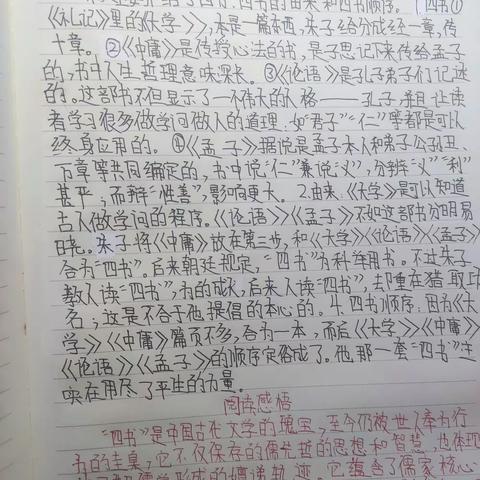 四书的由来和四书顺序。1.四书①
《礼记》里的《大学》,本是一篇东西,朱子给分成经一章,传
十章。②《中庸》是传授心法的书,是子思记下来传给孟子
的,书中人生哲理意味深长。③《论语》是孔子弟子们记述
的。这部书不但显示了一个伟大的人格——孔子,并且让读
者学习很多做学问做人的道理:如“君子”“仁”等都是可以
终身应用的。④《孟子》据说是孟子本人和弟子公孙丑、
万章等共同编定的,书中说“仁”兼说“义”,分辨“义”“利”
甚严,而辩“性善”,影响更大。2.由来:《大学》是可以知道
古人做学问的程序。《论语》《孟子》不如这部书分明易
晓。朱子将《中庸》放在第三步,和《大学》《论语》《孟子》
合为“四书”。后来朝廷规定,“四书”为科举用书。不过朱子
教人读“四书”,为的成长,后来人读“四书”,却重在猎取功
名,这是不合于他提倡的本心的。4.四书顺序:因为《大
学》《中庸》篇页不多,合为一本,而后《大学》《中庸》
《论语》《孟子》的顺序定俗成了。他那一套“四书”注
实在用尽了平生的力量。
阅读感悟
“四书”是中国古代文学的瑰宝,至今仍被世人奉为行
为的圭臬,它不仅保存的儒先哲的思想和智慧,也体现
儒学形成的嬗递轨迹。它蕴含了儒家核心